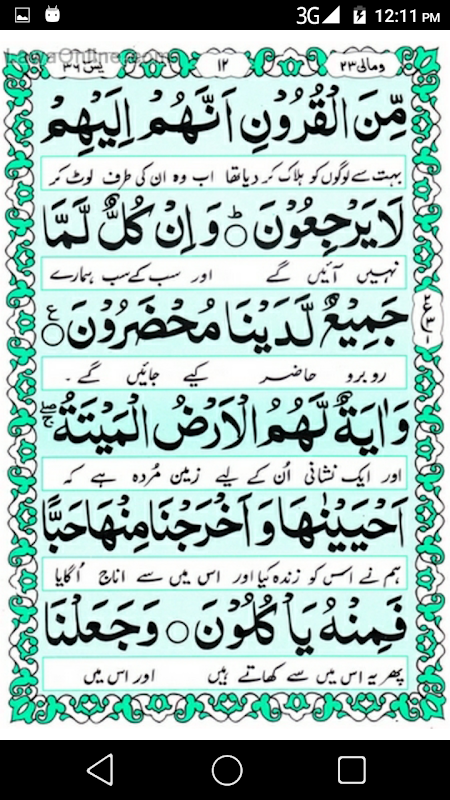 3G 12:11 PM
LawaOnline.com
يٰسٓ ٣٦ ١٢ ومالی ٢٣
مِّنَ الْقُرُوْنِ اَنَّهُمْ اِلَيْهِمْ
بہت سے لوگوں کو ہلاک کر دیا تھا اب وہ ان کی طرف لوٹ کر
لَا يَرْجِعُوْنَ ○ؕ وَاِنْ كُلٌّ لَّمَّا
نہیں آئیں گے اور سب کے سب ہمارے
جَمِيْعٌ لَّدَيْنَا مُحْضَرُوْنَ ○ع
روبرو حاضر کیے جائیں گے۔
وَاٰيَةٌ لَّهُمُ الْاَرْضُ الْمَيْتَةُ
اور ایک نشانی اُن کے لیے زمین مُردہ ہے کہ
اَحْيَيْنٰهَا وَاَخْرَجْنَا مِنْهَا حَبًّا
ہم نے اس کو زندہ کیا اور اس میں سے اناج اُگایا
فَمِنْهُ يَاْكُلُوْنَ ○ وَجَعَلْنَا
پھر یہ اس میں سے کھاتے ہیں اور اس میں